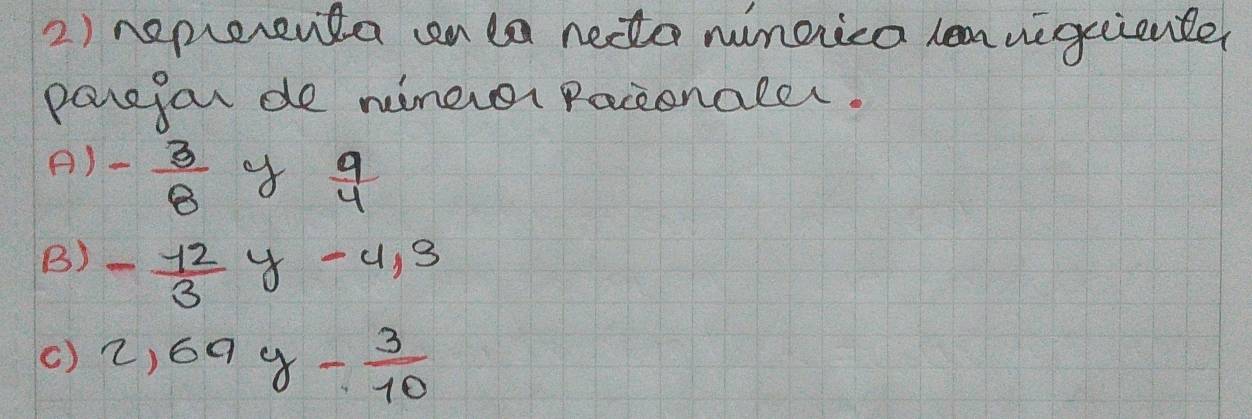 2) representa en la recta númerica las siguientes
parejas de números Racionales.
A) - 3/8 y 9/4
B) - 12/3 y - 4,3
C) 2,69 y - 3/10